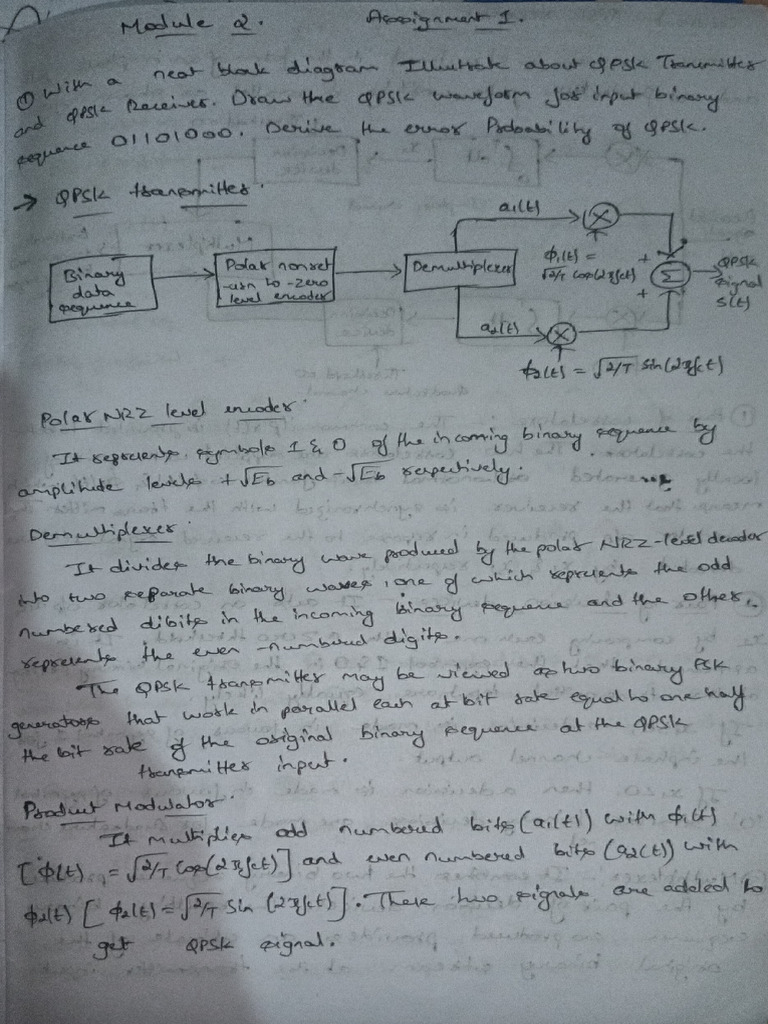 Module 2. Assignment 1.
① With a neat block diagram Illustrate about QPSK Transmitter
and QPSK Receiver. Draw the QPSK waveform for input binary
sequence 01101000. Derive the error Probability of QPSK.
→ QPSK transmitter.
Binary
data
sequence
Polar nonret
-urn to -zero
level encoder
Demultiplexer
a1(t)
ϕ1(t) =
√2/T cos(2πfct)
+
Σ
+
QPSK
signal
s(t)
a2(t)
ϕ2(t) = √2/T sin(2πfct)
Polar NRZ level encoder.
It represents symbols 1 & 0 of the incoming binary sequence by
amplitude levels +√Eb and -√Eb respectively.
Demultiplexer.
It divides the binary wave produced by the polar NRZ-level decoder
into two separate binary waves, one of which represents the odd
numbered dibits in the incoming binary sequence and the other
represents the even -numbered digits.
The QPSK transmitter may be viewed as two binary PSK
generators that work in parallel each at bit rate equal to one half
the bit rate of the original binary sequence at the QPSK
transmitter input.
Product Modulator.
It multiplies odd numbered bits (a1(t)) with ϕ1(t)
[ϕ(t) = √2/T cos(2πfct)] and even numbered bits (a2(t)) with
ϕ2(t) [ϕ2(t) = √2/T sin (2πfct)]. These two signals are added to
get QPSK signal.